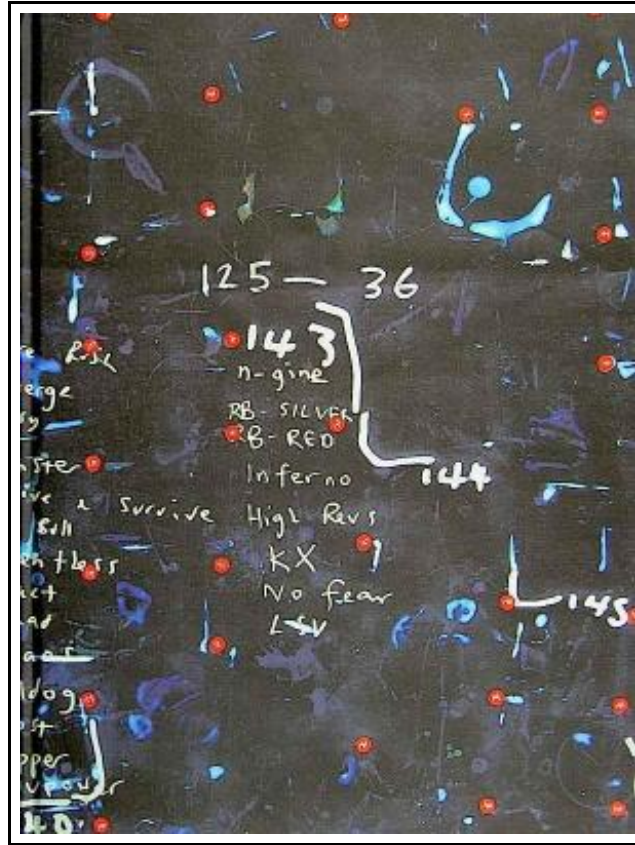 125 — 36
143
n-gine
RB - SILVER
RB - RED
Inferno
High Revs
KX
No fear
LSV
144
145
Risk
erge
ster
ive & Survive
Bull
entless
act
aos
ldog
st
pper
power
40